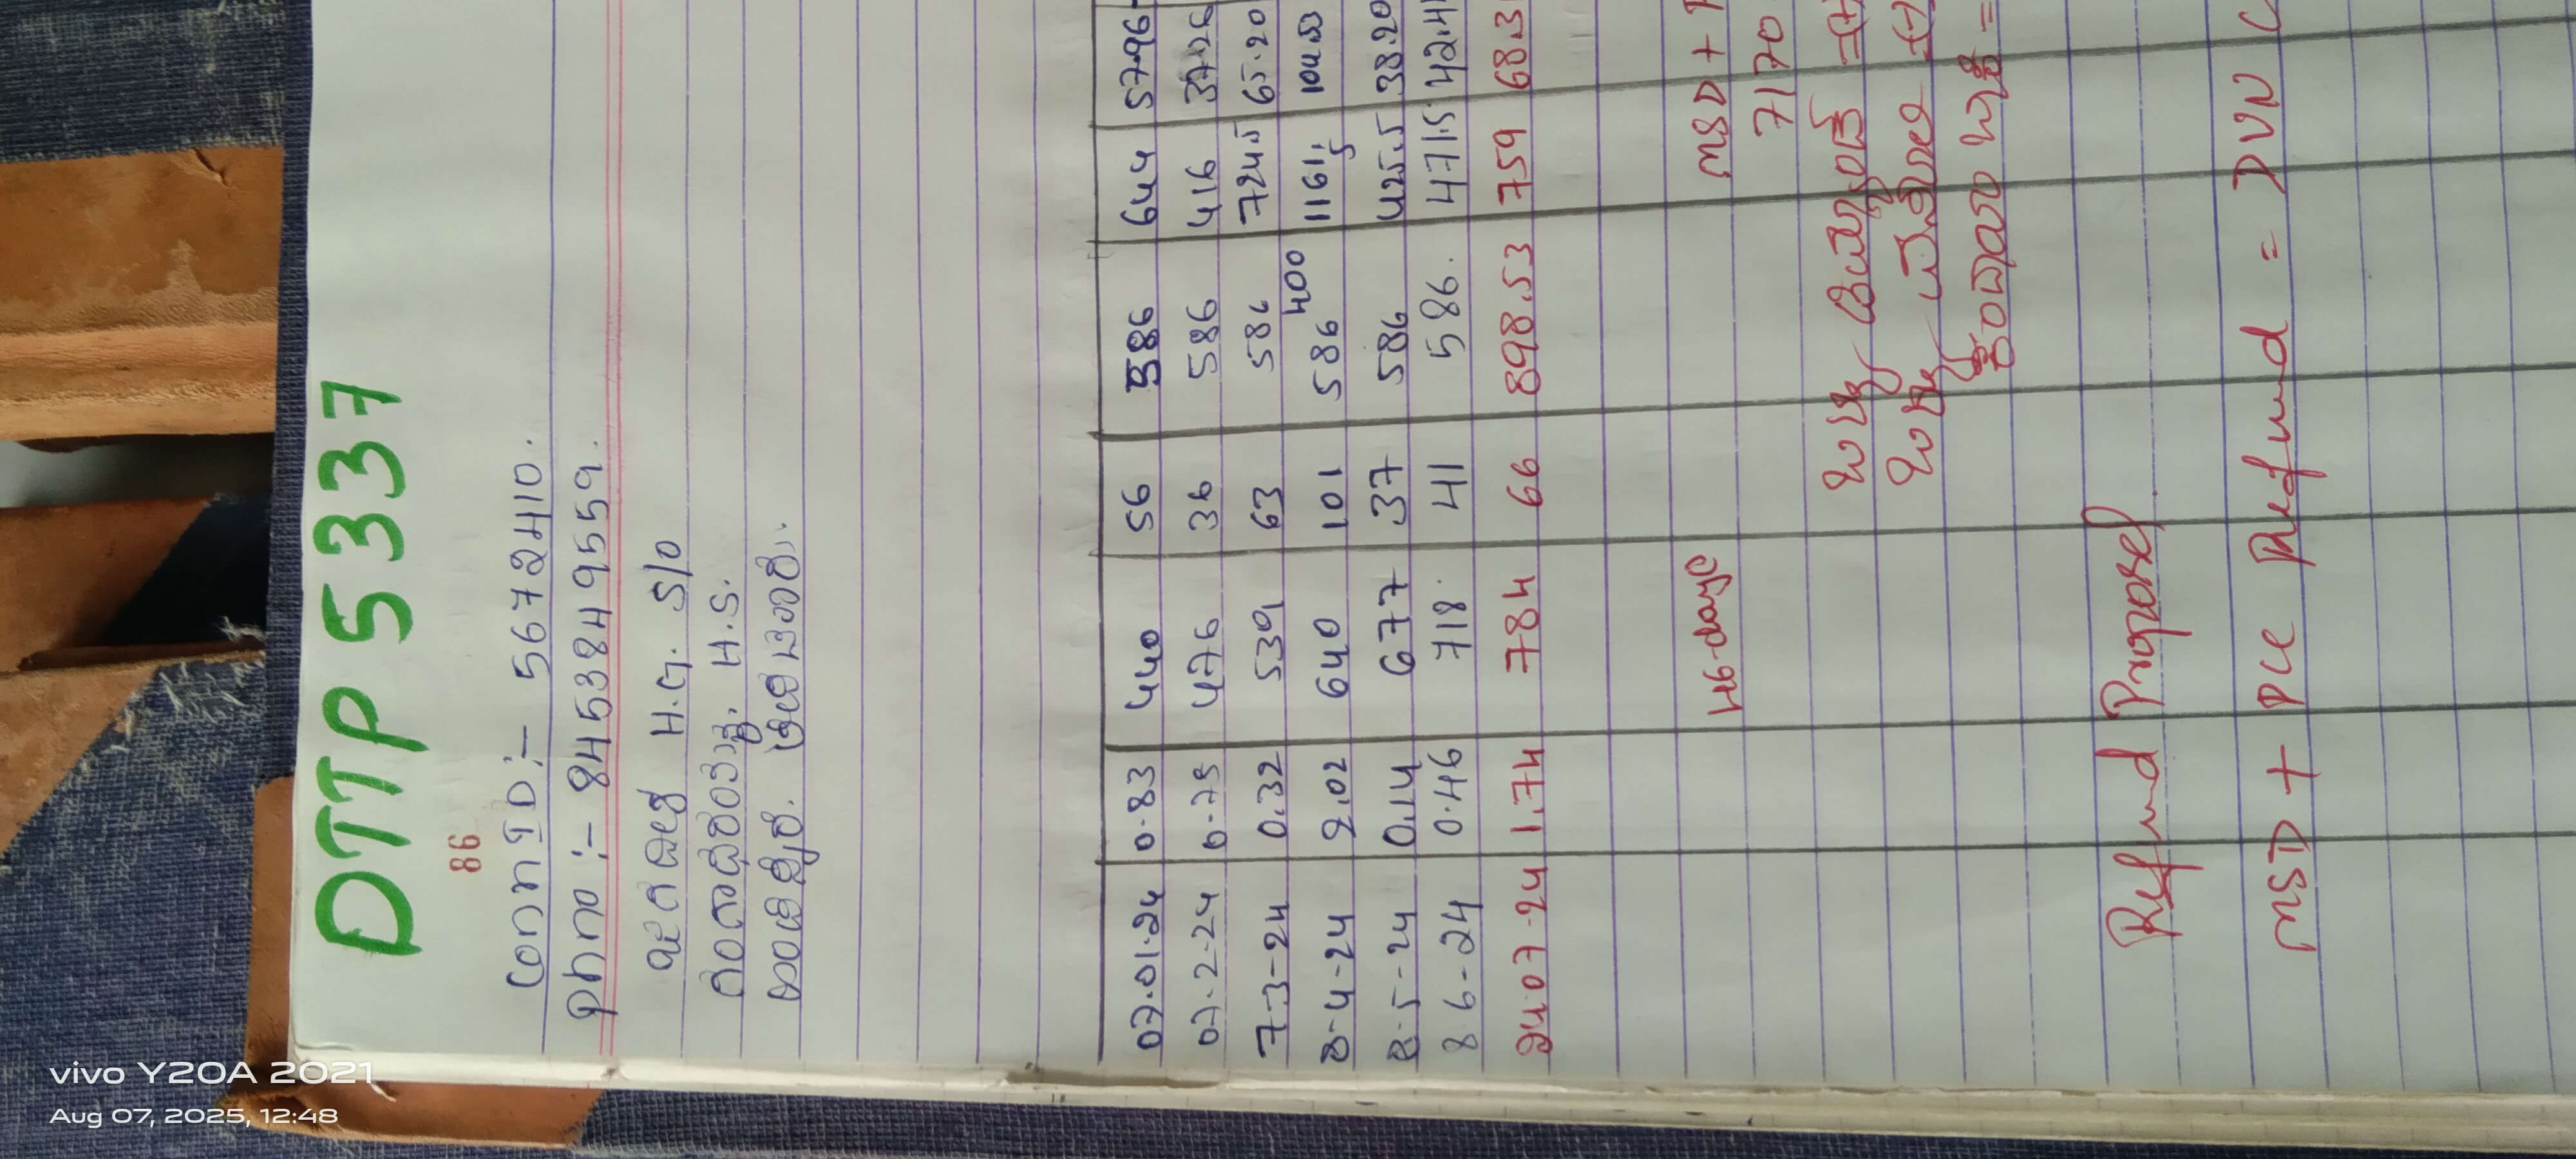 DTTP 5337
86
Conn ID:- 5672410.
phno:- 8453849559.
ಜಗದೀಶ H.G. S/o
ಗಂಗಾಧರಯ್ಯ. H.S.
07.01.24 0.83 440 56 586 644 57.96
07.2.24 0.75 476 36 586 416 37.26
7-3-24 0.32 539 63 586 724.5 65.20
8-4-24 2.02 640 101 586 400 1161.5 104.53
8-5-24 0.14 677 37 586 425.5 38.20
8-6-24 0.46 718. 41 586. 471.5 42.4
24.07.24 1.74 784 66 898.53 759 68.3
46-days MSD +
7170
Refund Proposel
MSD + PCC Refund = DVN
vivo Y20A 2021
Aug 07, 2025, 12:48